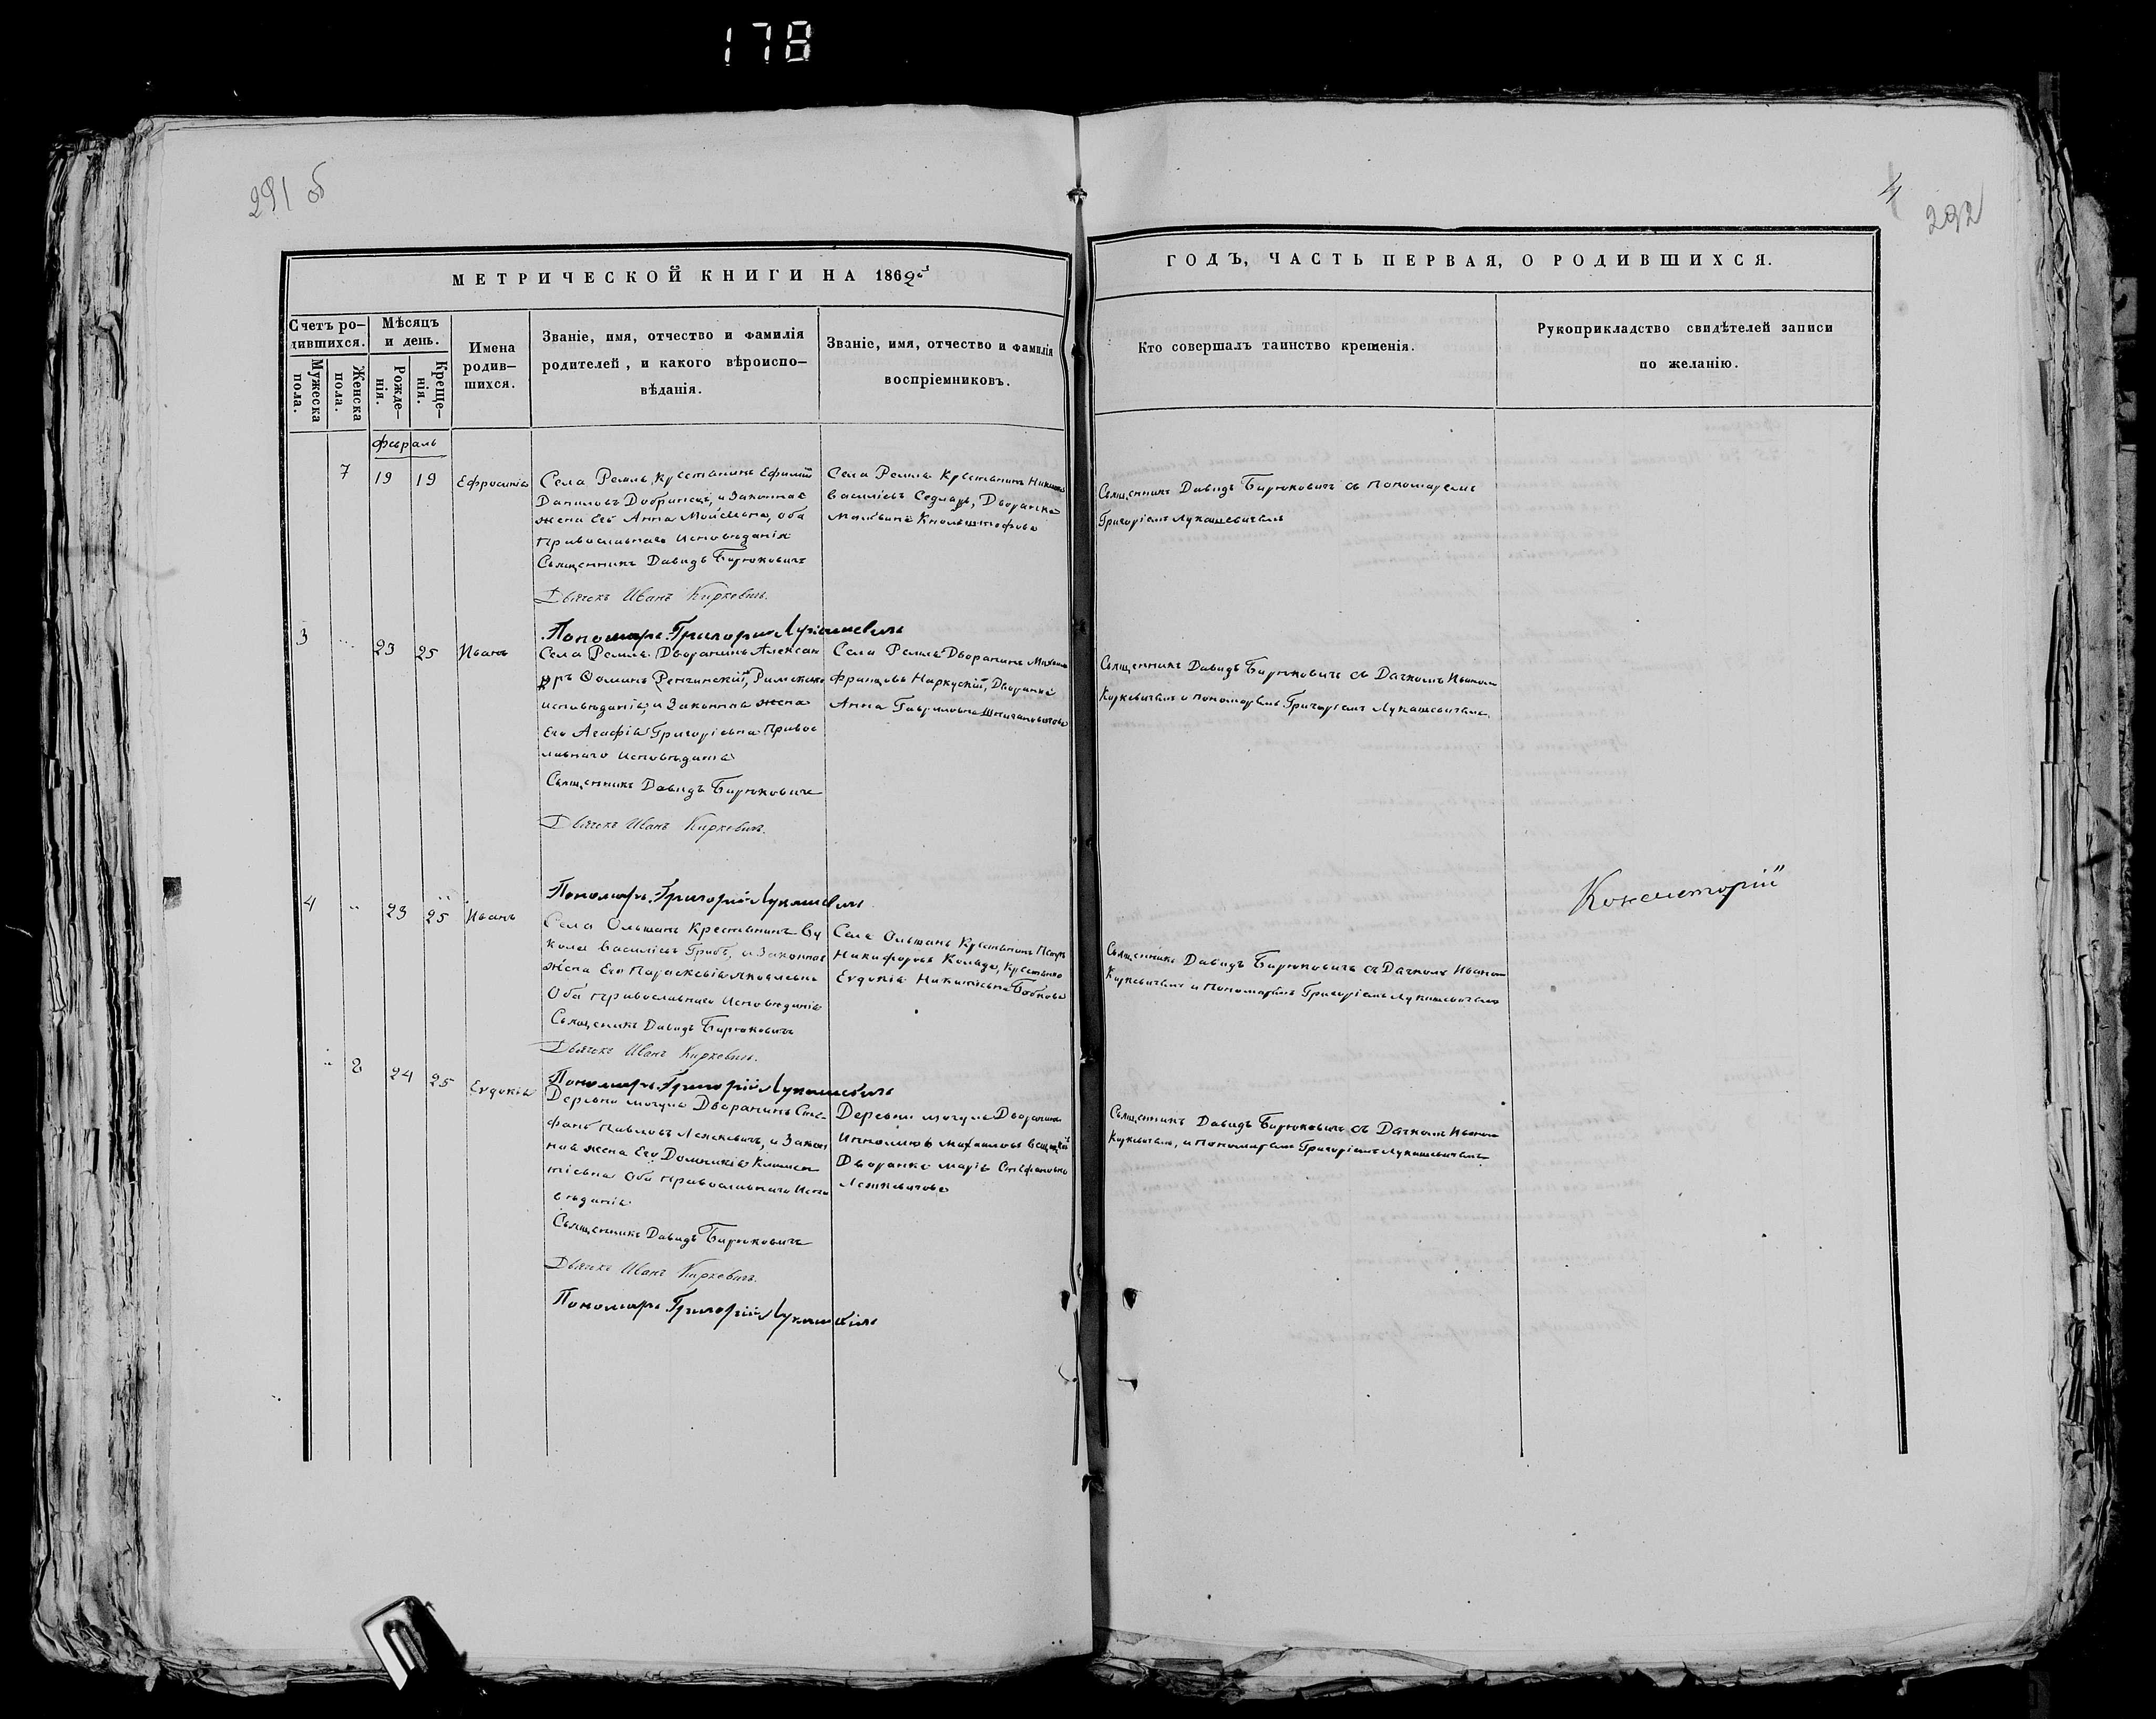 178
291 об
4
292
МЕТРИЧЕСКОЙ КНИГИ НА 1862й
ГОДЪ, ЧАСТЬ ПЕРВАЯ, О РОДИВШИХСЯ.
Счетъ ро-
дившихся.
Мужеска
пола.
Женска
пола.
Мѣсяцъ
и день.
Рожде-
нія.
Креще-
нія.
Имена
родив-
шихся.
Званіе, имя, отчество и фамилія
родителей, и какого вѣроиспо-
вѣданія.
Званіе, имя, отчество и фамилія
воспріемниковъ.
Кто совершалъ таинство крещенія.
Рукоприкладство свидѣтелей записи
по желанію.
Февраль
7 19 19 Ефросинія
Села Ремля Крестьянинъ Ефимій
Даниловъ Добринецъ, и Законная
жена Его Анна Мойсѣевна, оба
Православнаго Исповѣданія
Священникъ Давидъ Бирюковичъ
Дьячекъ Иванъ Киркевичъ.
Пономарь Григорій Лукашевичъ
Села Ремля Крестьянинъ
Василіевъ Седляръ, Дворянка
Священникъ Давидъ Бирюковичъ съ Пономаремъ
Григоріемъ Лукашевичемъ
3 23 25 Иванъ
Села Ремля Дворянинъ Алексан
дръ Фоминъ Ренчинскій, Римскаго
исповѣданія, и Законная жена
Его Агафія Григоріевна Правос
лавнаго Исповѣданія
Священникъ Давидъ Бирюковичъ
Дьячекъ Иванъ Киркевичъ.
Пономарь Григорій Лукашевичъ
Села Ремля Дворянинъ Михаилъ
Францовъ Наркускій, Дворянка
Анна Гавриловна
Священникъ Давидъ Бирюковичъ съ Дячкомъ Иваномъ
Киркевичемъ и Пономаремъ Григоріемъ Лукашевичемъ.
4 23 25 Иванъ
Села Ольшанъ Крестьянинъ Ву
кола Василіевъ Грибъ, и Законная
Жена Его Параскевія Яковлевна
Оба Православнаго Исповѣданія
Священникъ Давидъ Бирюковичъ
Дьячекъ Иванъ Киркевичъ.
Пономарь Григорій Лукашевичъ
Села Ольшанъ Крестьянинъ Петръ
Никифоровъ Коляда, Крестьянка
Евдокія Никитіевна Бобкова
Священникъ Давидъ Бирюковичъ съ Дячкомъ Иваномъ
Киркевичемъ и Пономаремъ Григоріемъ Лукашевичемъ
Консисторіи
8 24 25 Евдокія
Деревни Дворянинъ Сте
фанъ Павловъ Лешкевичъ, и Закон
ная жена Его Домникія Климен
тіевна Оба Православнаго Испо
вѣданія
Священникъ Давидъ Бирюковичъ
Дьячекъ Иванъ Киркевичъ.
Пономарь Григорій Лукашевичъ
Деревни Дворянинъ
Михаиловъ
Дворянка Марія Стефановна
Лешкевичова
Священникъ Давидъ Бирюковичъ съ Дячкомъ Иваномъ
Киркевичемъ, и Пономаремъ Григоріемъ Лукашевичемъ